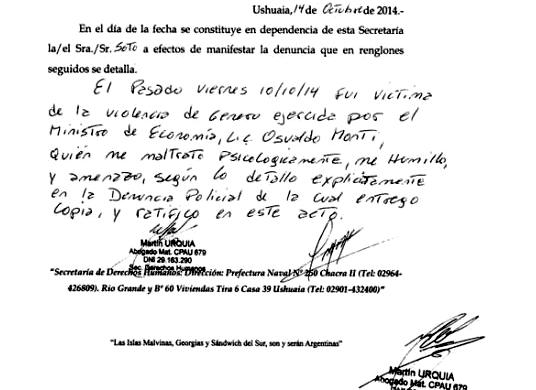 Ushuaia, 14 de Octubre de 2014.-
En el día de la fecha se constituye en dependencia de esta Secretaría
la/el Sra./Sr. SOTO a efectos de manifestar la denuncia que en renglones
seguidos se detalla.
El Pasado viernes 10/10/14 fui victima
de la violencia de Genero ejercida por el
Ministro de Economía, Lic. Osvaldo Monti,
Quién me maltrato Psicologicamente, me Humillo,
y amenazo, según lo detallo explicitamente
en la Denuncia Policial de la cual entrego
copia, y ratifico en este acto.
Martín URQUIA
Abogado Mat. CPAU 679
DNI 29.163.290
Sec. Derechos Humanos
"Secretaría de Derechos Humanos: Dirección: Prefectura Naval Nº 250 Chacra II (Tel: 02964-
426809). Rio Grande y Bº 60 Viviendas Tira 6 Casa 39 Ushuaia (Tel: 02901-432400)"
"Las Islas Malvinas, Georgias y Sándwich del Sur, son y serán Argentinas"
Martín URQUIA
Abogado Mat. CPAU 679